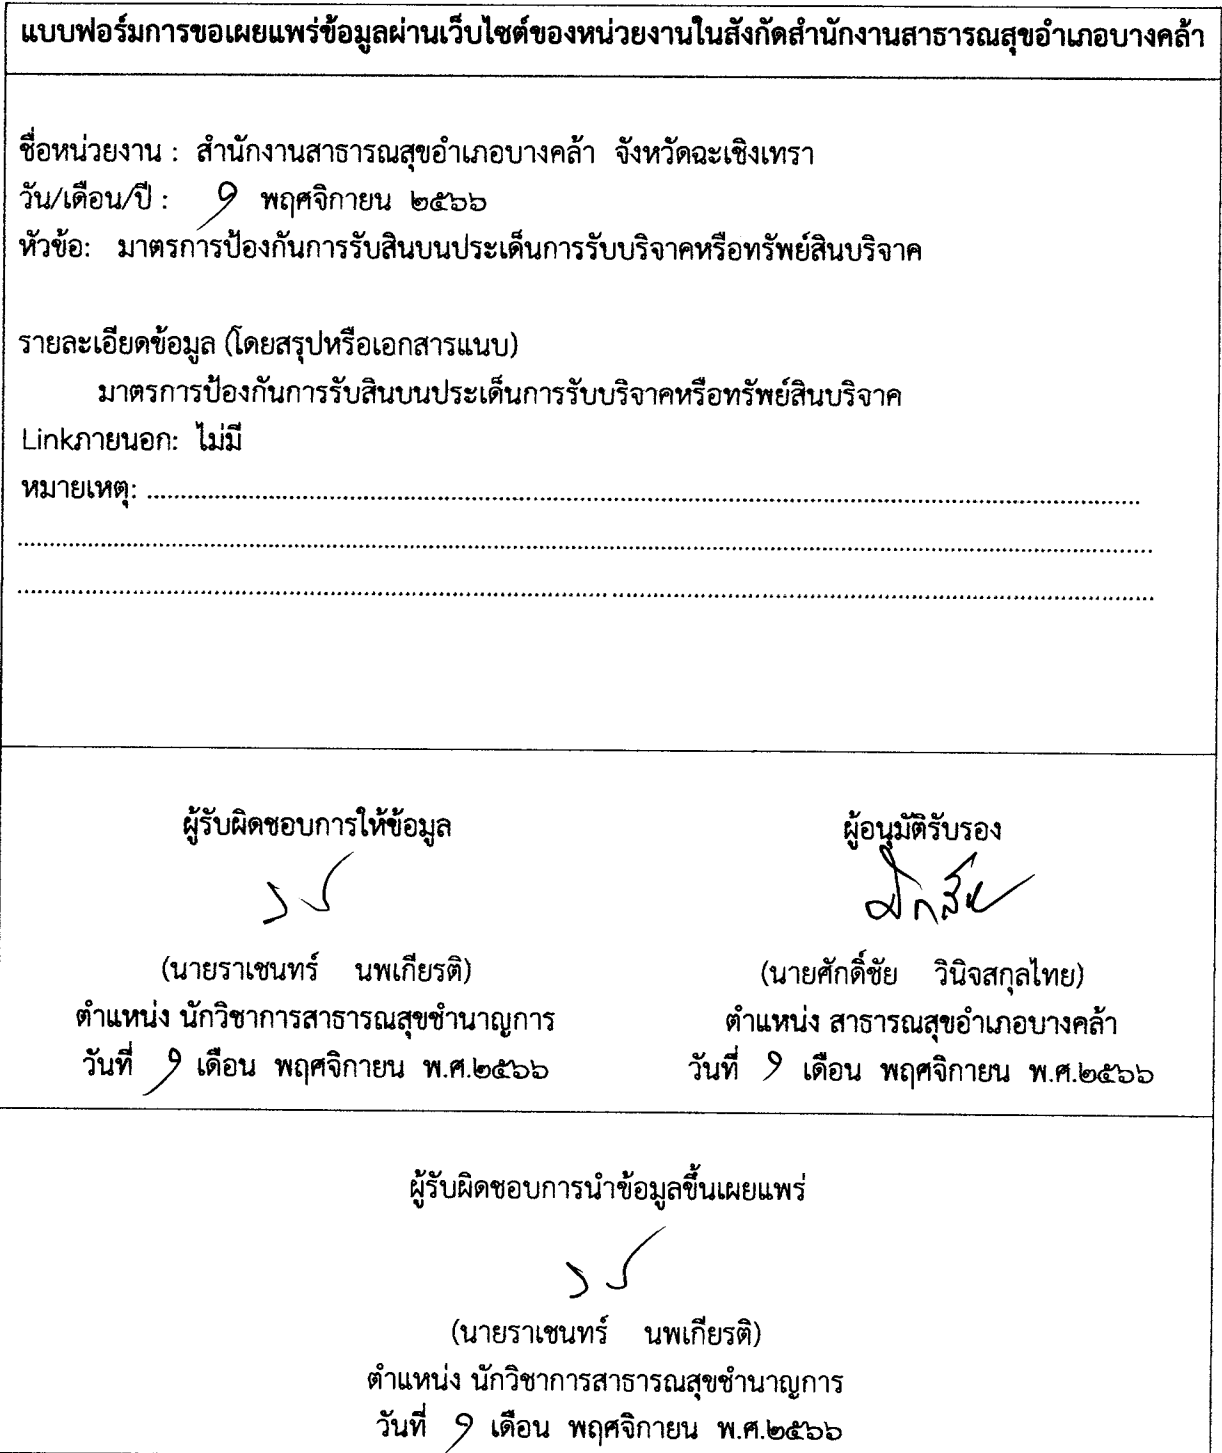 แบบฟอร์มการขอเผยแพร่ข้อมูลผ่านเว็บไซต์ของหน่วยงานในสังกัดสำนักงานสาธารณสุขอำเภอบางคล้า
ชื่อหน่วยงาน : สำนักงานสาธารณสุขอำเภอบางคล้า จังหวัดฉะเชิงเทรา
วัน/เดือน/ปี : ๑ พฤศจิกายน ๒๕๖๖
หัวข้อ: มาตรการป้องกันการรับสินบนประเด็นการรับบริจาคหรือทรัพย์สินบริจาค
รายละเอียดข้อมูล (โดยสรุปหรือเอกสารแนบ)
มาตรการป้องกันการรับสินบนประเด็นการรับบริจาคหรือทรัพย์สินบริจาค
Linkภายนอก: ไม่มี
หมายเหตุ:
ผู้รับผิดชอบการให้ข้อมูล
(นายราเชนทร์ นพเกียรติ)
ตำแหน่ง นักวิชาการสาธารณสุขชำนาญการ
วันที่ ๑ เดือน พฤศจิกายน พ.ศ.๒๕๖๖
ผู้อนุมัติรับรอง
(นายศักดิ์ชัย วินิจสกุลไทย)
ตำแหน่ง สาธารณสุขอำเภอบางคล้า
วันที่ ๑ เดือน พฤศจิกายน พ.ศ.๒๕๖๖
ผู้รับผิดชอบการนำข้อมูลขึ้นเผยแพร่
(นายราเชนทร์ นพเกียรติ)
ตำแหน่ง นักวิชาการสาธารณสุขชำนาญการ
วันที่ ๑ เดือน พฤศจิกายน พ.ศ.๒๕๖๖